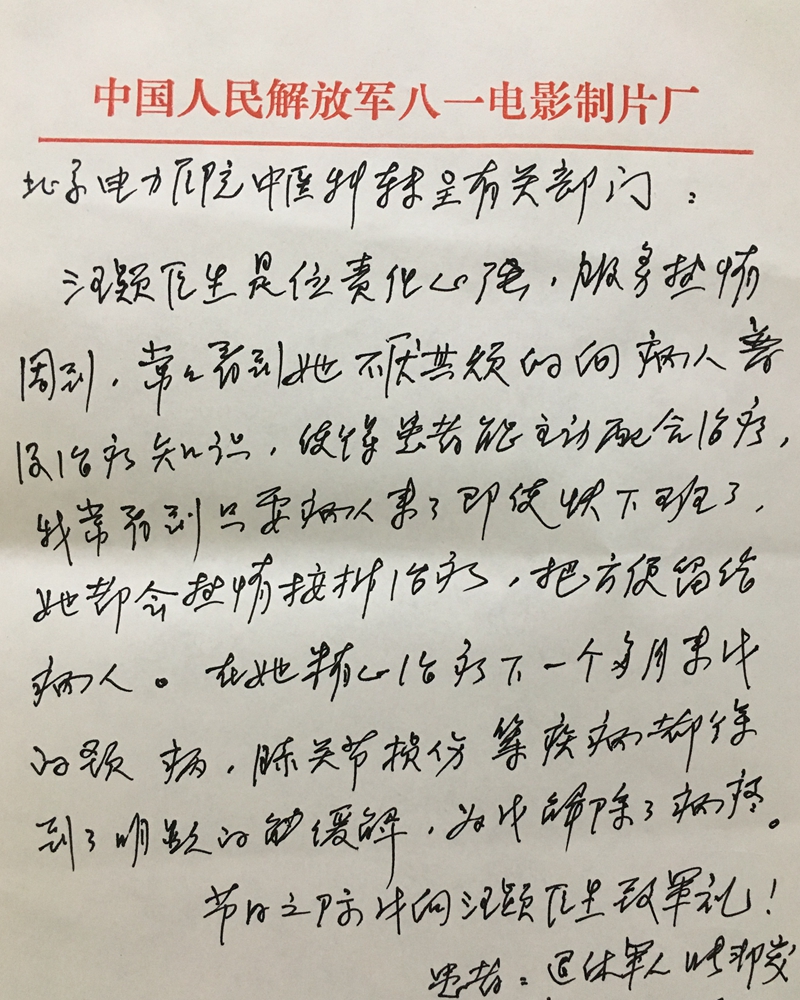 中国人民解放军八一电影制片厂
北京电力医院中医科转呈有关部门：
汪颖医生是位责任心强，服务热情
周到，常常看到她不厌其烦的向病人普
及治疗知识，使得患者能主动配合治疗，
我常看到只要病人来了即使快下班了，
她都会热情接排治疗，把方便留给
病人。在她精心治疗下一个多月来我
的颈病，膝关节损伤等疾病都得
到了明显的的缓解，为我解除了病疼。
节日之际我向汪颖医生致军礼！
患者：退休军人